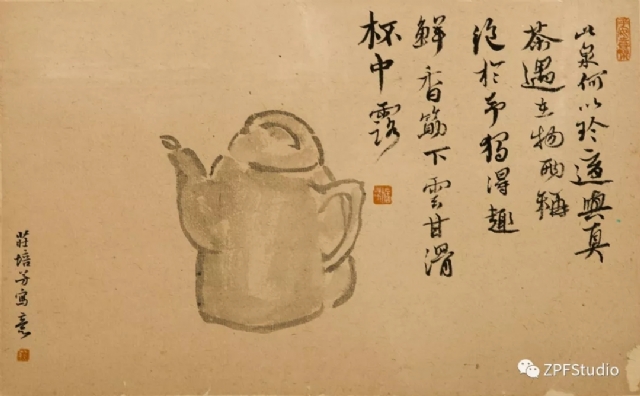 此泉何以珍適與真
茶遇在物兩稱
絕於予獨得趣
鮮香筯下雲甘滑
杯中露
莊培芳寫意
ZPFStudio